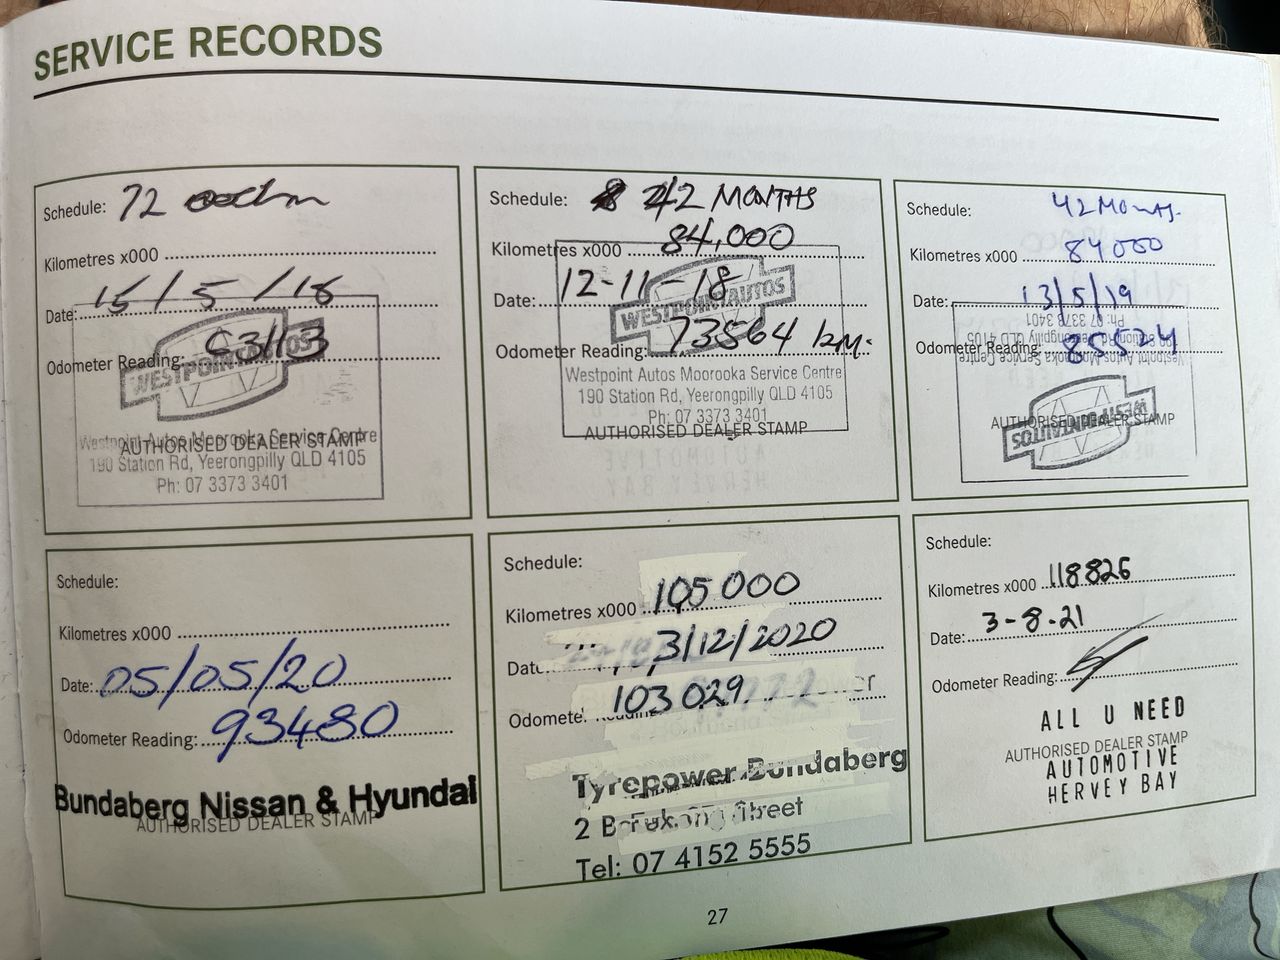 SERVICE RECORDS
Schedule: 72
Kilometres x000
Date: 15/5/18
Odometer Reading: 63113
WESTPOINT AUTOS
Westpoint Autos Moorooka Service Centre
AUTHORISED DEALER STAMP
190 Station Rd, Yeerongpilly QLD 4105
Ph: 07 3373 3401
Schedule: 42 MONTHS
Kilometres x000 84,000
Date: 12-11-18
WESTPOINT AUTOS
Odometer Reading: 73564 km.
Westpoint Autos Moorooka Service Centre
190 Station Rd, Yeerongpilly QLD 4105
Ph: 07 3373 3401
AUTHORISED DEALER STAMP
Schedule: 42 MONTHS.
Kilometres x000 84000
Date: 13/5/19
Ph: 07 3373 3401
Odometer Reading: 85524
Westpoint Autos Moorooka Service Centre
AUTHORISED DEALER STAMP
WESTPOINT AUTOS
Schedule:
Kilometres x000
Date: 05/05/20
Odometer Reading: 93480
Bundaberg Nissan & Hyundai
AUTHORISED DEALER STAMP
Schedule:
Kilometres x000 105000
Date 3/12/2020
Odometer Reading 103029
Tyrepower Bundaberg
2 B Street
Tel: 07 4152 5555
Schedule:
Kilometres x000 118826
Date: 3-8-21
Odometer Reading:
ALL U NEED
AUTHORISED DEALER STAMP
AUTOMOTIVE
HERVEY BAY
27